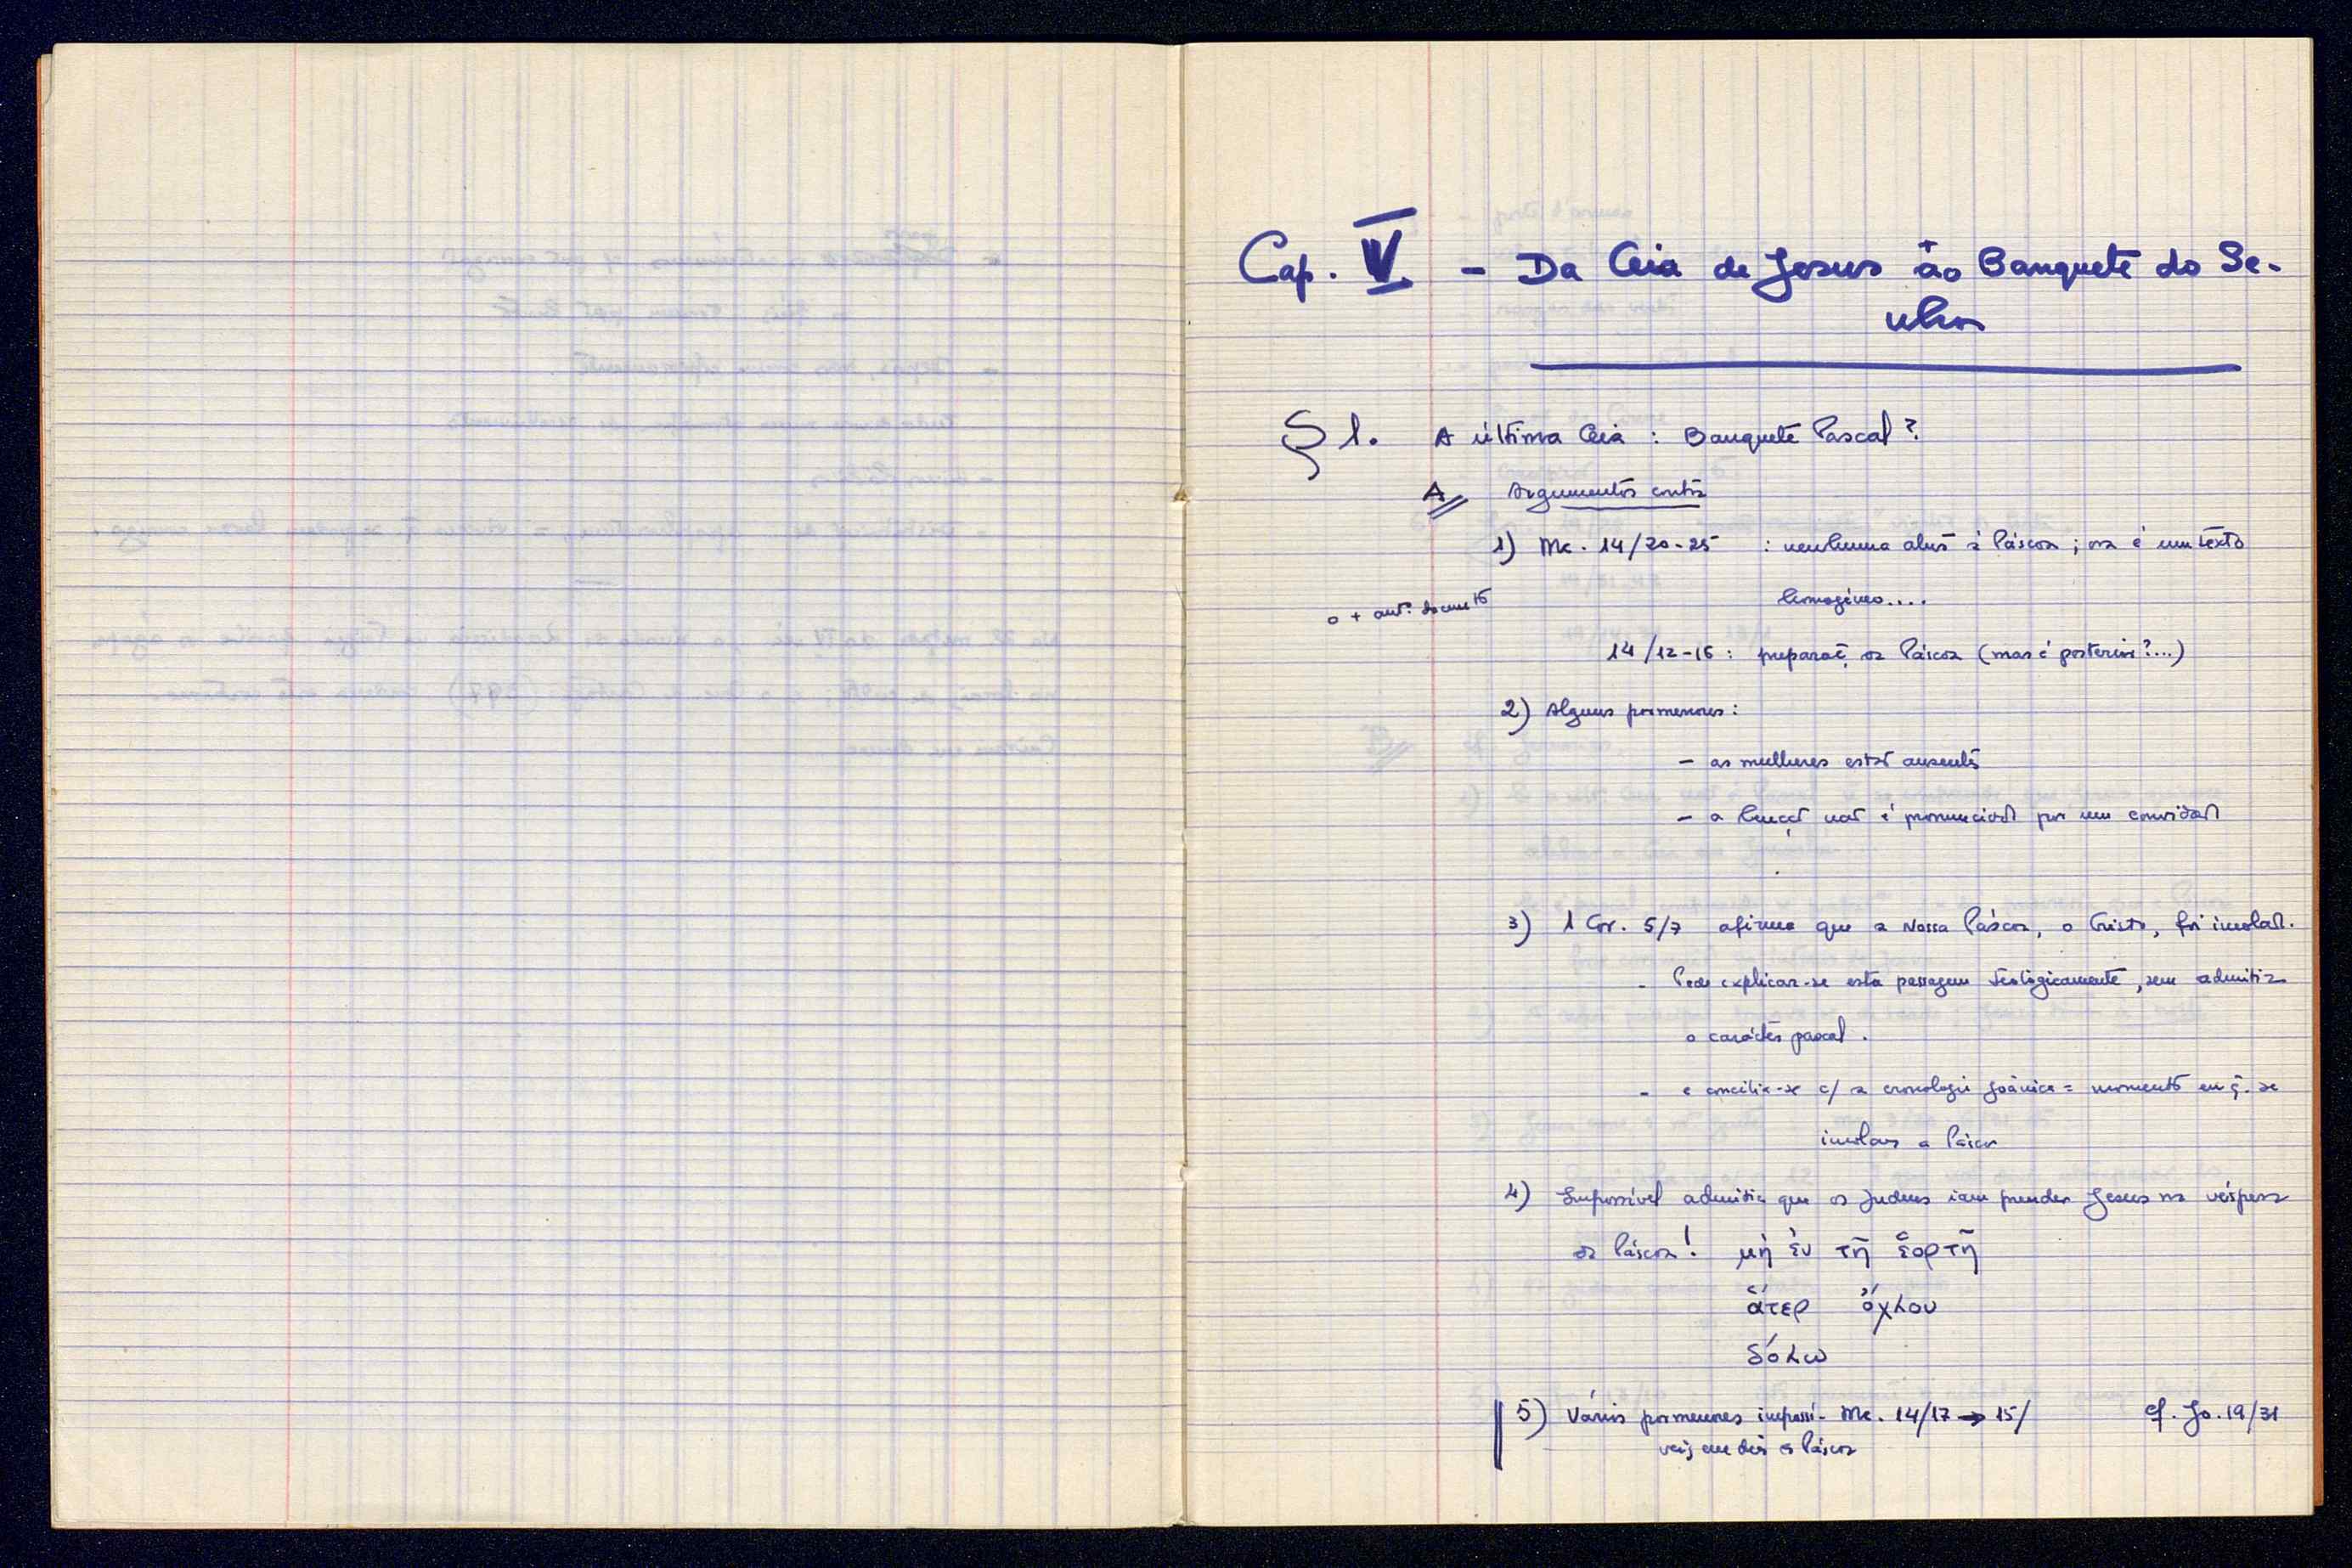 Cap. V. - Da Ceia de Jesus ao Banquete do Se-
nhor
§ 1. A última Ceia : Banquete Pascal ?
A Argumentos contra
1) Mc. 14/20-25 : nenhuma alus à Páscoa ; ora é um texto
homogéneo....
o + ant. documto
14/12-16 : preparaç da Páscoa (mas é posterior ?...)
2) Alguns pormenores :
- as mulheres estão ausentes
- a benção não é pronunciada por um convidado
3) 1 Cor. 5/7 afirma que a Nossa Páscoa, o Cristo, foi imolado.
- Pode explicar-se esta passagem teològicamente, sem admitir
o carácter pascal.
- e concilia-se c/ a cronologia joânica = momento em q. se
imolava a Páscoa
4) Impossível admitir que os Judeus iam prender Jesus na véspera
da Páscoa ! μὴ ἐν τῇ ἑορτῇ
ἄτερ ὄχλου
δόλω
5) Vários pormenores impossí- Mc. 14/17 → 15/ cf. Jo. 19/31
veis em dia de Páscoa